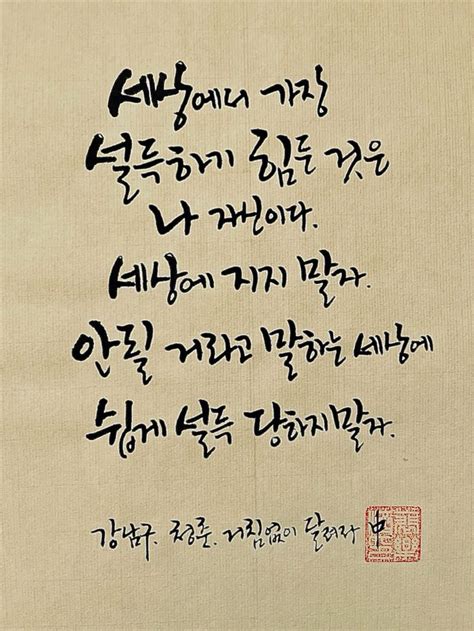 세상에서 가장
설득하기 힘든 것은
나 자신이다.
세상에 지지 말자.
안될 거라고 말하는 세상에
쉽게 설득 당하지말자.
강남구. 청춘. 거침없이 달려라 中